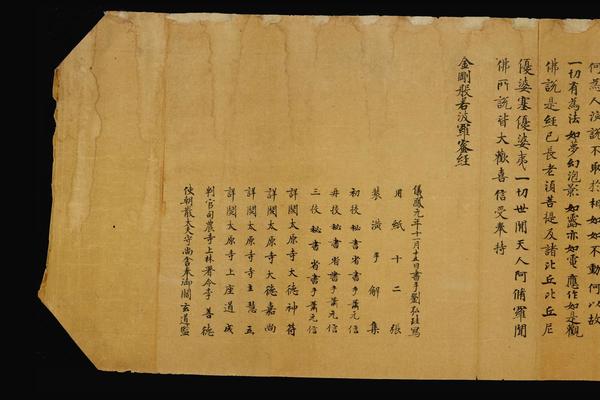 何為人演說不取於相如如不動何以故
一切有為法如夢幻泡影如露亦如電應作如是觀
佛說是經已長老須菩提及諸比丘比丘尼
優婆塞優婆夷一切世間天人阿脩羅聞
佛所說皆大歡喜信受奉持
金剛般若波羅蜜經
儀鳳元年十一月十五日書手劉弘珪寫
用紙十二張
裝潢手解集
初校秘書省書手蕭元信
再校秘書省書手蕭元信
三校秘書省書手蕭元信
詳閱太原寺大德神符
詳閱太原寺大德嘉尚
詳閱太原寺寺主慧立
詳閱太原寺上座道成
判官司農寺上林署令李善德
使朝散大夫守尚舍奉御閻玄道監